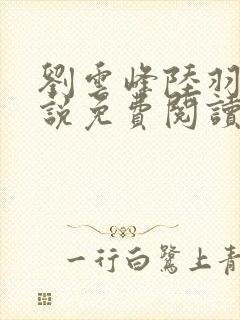 劉雲峰陸羽
説免費閱讀
一行白鷺上青